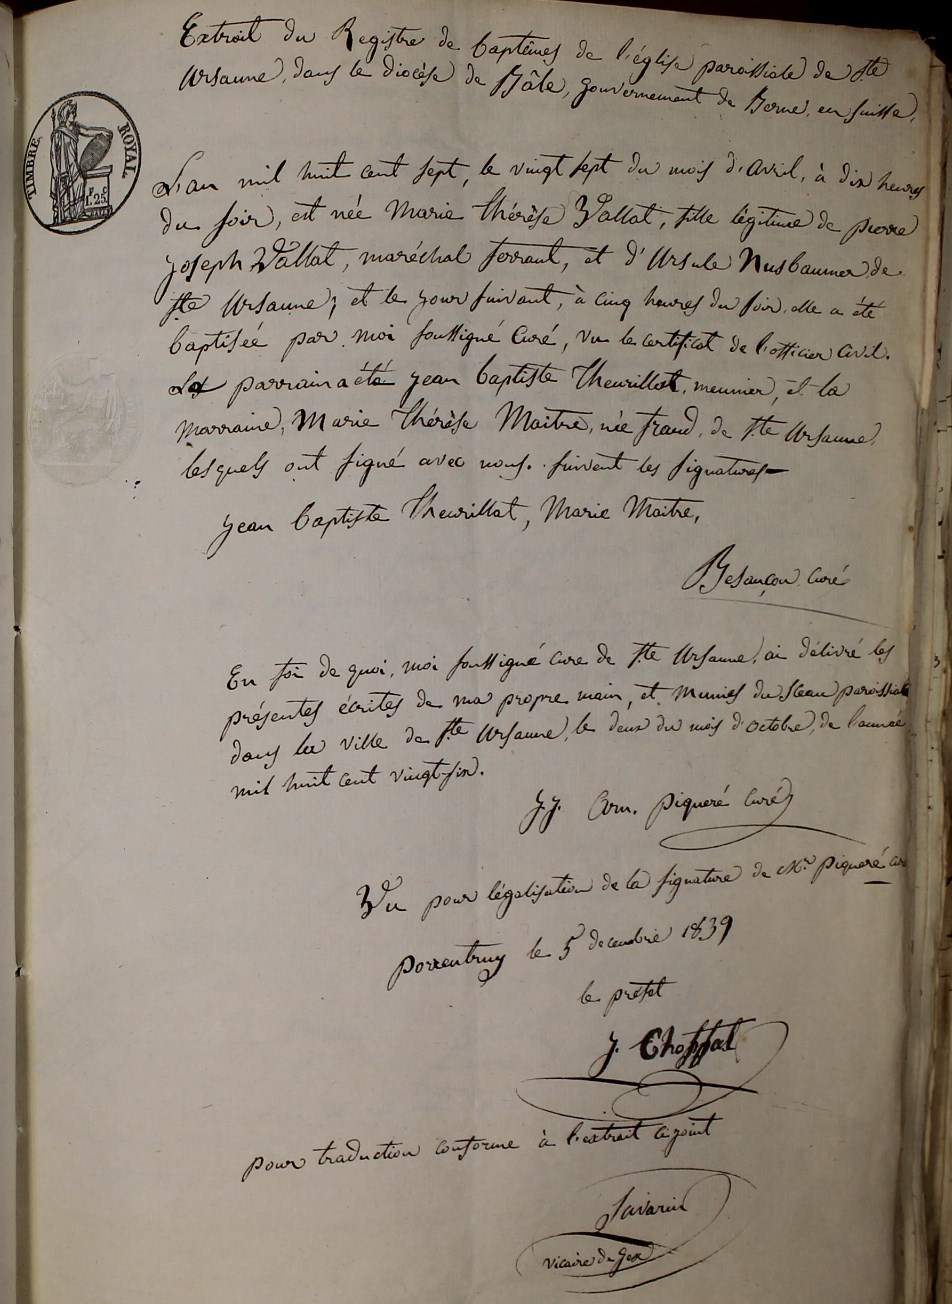 Extrait du Registre de baptêmes de l'église paroissiale de Ste
Ursanne, dans le diocèse de Bâle, gouvernement de Berne, en suisse.
TIMBRE ROYAL
F. C.
1. 25
L'an mil huit cent sept, le vingt sept du mois d'avril, à dix heures
du soir, est née Marie thérèse Vallat, fille légitime de pierre
joseph Vallat, maréchal ferrant, et d'Ursule Nusbaumer de
Ste Ursanne; et le jour suivant, à cinq heures du soir, elle a été
baptisée par moi soussigné Curé, vu le certificat de l'officier Civil.
Le parrain a été jean baptiste theurillat, meunier, et la
marraine, Marie thérèse Maitre, née de Ste Ursanne,
lesquels ont signé avec nous. suivent les signatures
jean baptiste theurillat, Marie Maitre,
Besançon Curé
En foi de quoi, moi soussigné curé de Ste Ursanne, ai délivré les
présentes écrites de ma propre main, et munies du sceau paroissiale
dans la ville de Ste Ursanne, le deux du mois d'octobre, de l'année
mil huit cent vingt-six.
J.J. piqueré Curé
Vu pour légalisation de la signature de Mr. piqueré curé
porrentruy le 5 decembre 1839
le préfet
J. Choffat
pour traduction conforme à l'extrait ci-joint
Savarin
vicaire de Gex